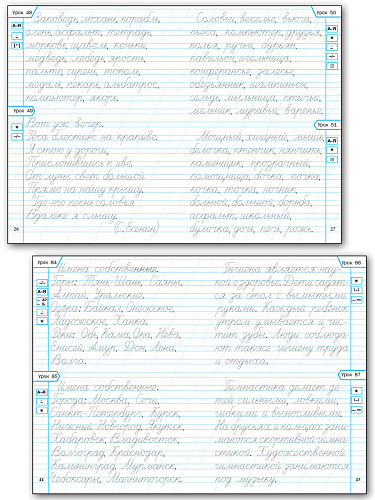 Урок 48
корабль,
олень, асфальт, тетрадь,
морковь, щавель, коньки,
медведь, лебедь, ярость,
пальто, сирень, тополь,
медаль, пекарь, альбатрос,
компьютер, якорь.
Урок 49
Вот уж вечер.
Роса блестит на крапиве.
Я стою у дороги,
Прислонившись к иве.
От луны свет большой
Прямо на нашу крышу.
Где-то песнь соловья
Вдалеке я слышу.
(С. Есенин)
26
Урок 50
Соловьи, веселье, вьюга,
пьеса, компьютер, друзья,
колья, ручьи, бурьян,
павильон, вольница,
конферансье, залесье,
обезьянник, шампиньон,
сельдь, мыльница, птичьи,
мельник, муравьи, варенье.
Урок 51
Мощный, хищный, мышь,
белочка, птенчик, нянчить,
каменщик, прозрачный,
помощница, бочка, почка,
кочка, точка, ночник,
большой, большой, борьба,
асфальт, школьный,
булочка, дочь, печь, рожь.
27
Урок 84
Имена собственные.
Горы: Тянь-Шань, Саяны,
Алтай, Уральские.
Озёра: Байкал, Онежское,
Ладожское, Ханка.
Реки: Обь, Кама, Ока, Нева,
Енисей, Амур, Дон, Лена,
Волга.
Урок 85
Имена собственные.
Города: Москва, Сочи,
Санкт-Петербург, Курск,
Нижний Новгород, Якутск,
Хабаровск, Владивосток,
Волгоград, Краснодар,
Калининград, Мурманск,
Чебоксары, Магнитогорск.
44
Урок 86
Гигиена является нау-
кой о здоровье. Дети садят-
ся за стол с вымытыми
руками. Каждый ребёнок
утром умывается и чис-
тит зубы. Люди соблюда-
ют также гигиену труда
и отдыха.
Урок 87
Гимнастика делает де-
тей сильными, ловкими,
гибкими и выносливыми.
На брусьях и кольцах зани-
маются спортивной гимна-
стикой. Художественной
гимнастикой занимаются
под музыку.
45